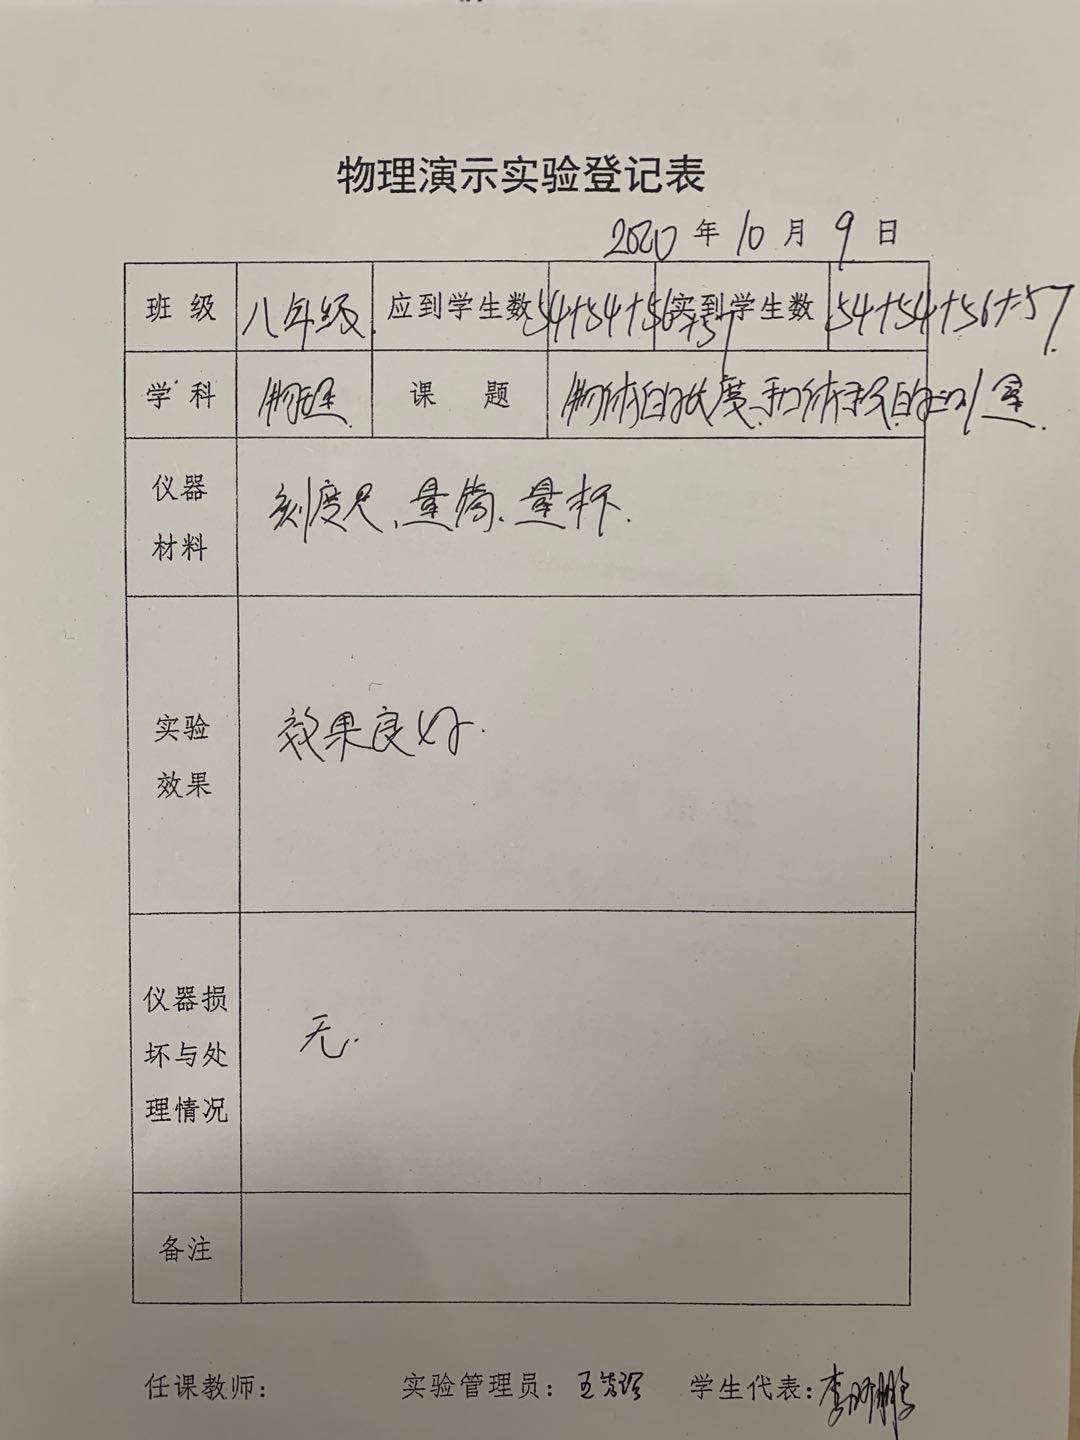 物理演示实验登记表
2020年10月9日
班级 八年级. 应到学生数 54+54+56+57 实到学生数 54+54+56+57.
学科 物理. 课题 物体的长度和体积的测量.
仪器材料 刻度尺、量筒、量杯.
实验效果 效果良好.
仪器损坏与处理情况 无.
备注
任课教师: 实验管理员: 学生代表: